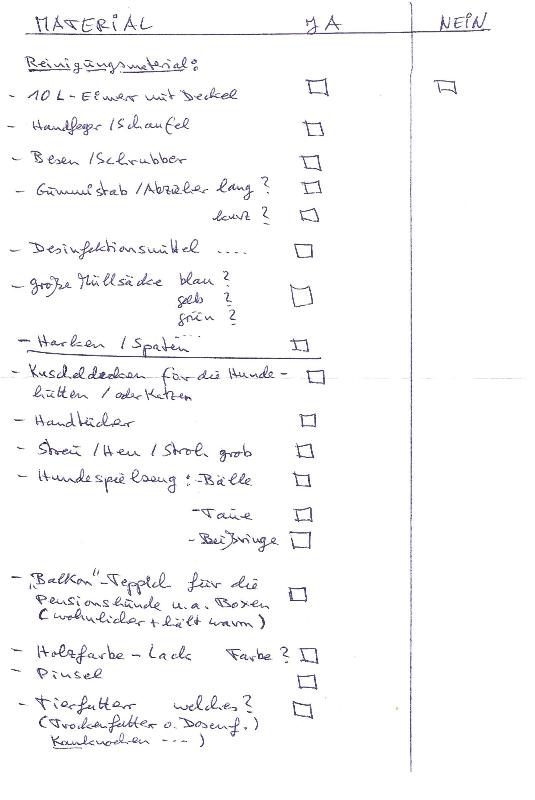 MATERIAL JA NEIN
Reinigungsmaterial:
- 10 L-Eimer mit Deckel
- Handfeger / Schaufel
- Besen / Schrubber
- Gummistab / Abzieher lang?
kurz?
- Desinfektionsmittel ....
- große Müllsäcke blau?
gelb?
grün?
- Harken / Spaten
- Kuscheldecken für die Hunde-
hütten / oder Katzen
- Handtücher
- Streu / Heu / Stroh grob
- Hundespielzeug: - Bälle
- Taue
- Beißringe
- „Balkon"-Teppich für die
Pensionshunde u.a. Boxen
(wohnlicher + hält warm)
- Holzfarbe - Lack Farbe?
- Pinsel
- Tierfutter welches?
(Trockenfutter o. Dosenf.)
Kauknochen ---)